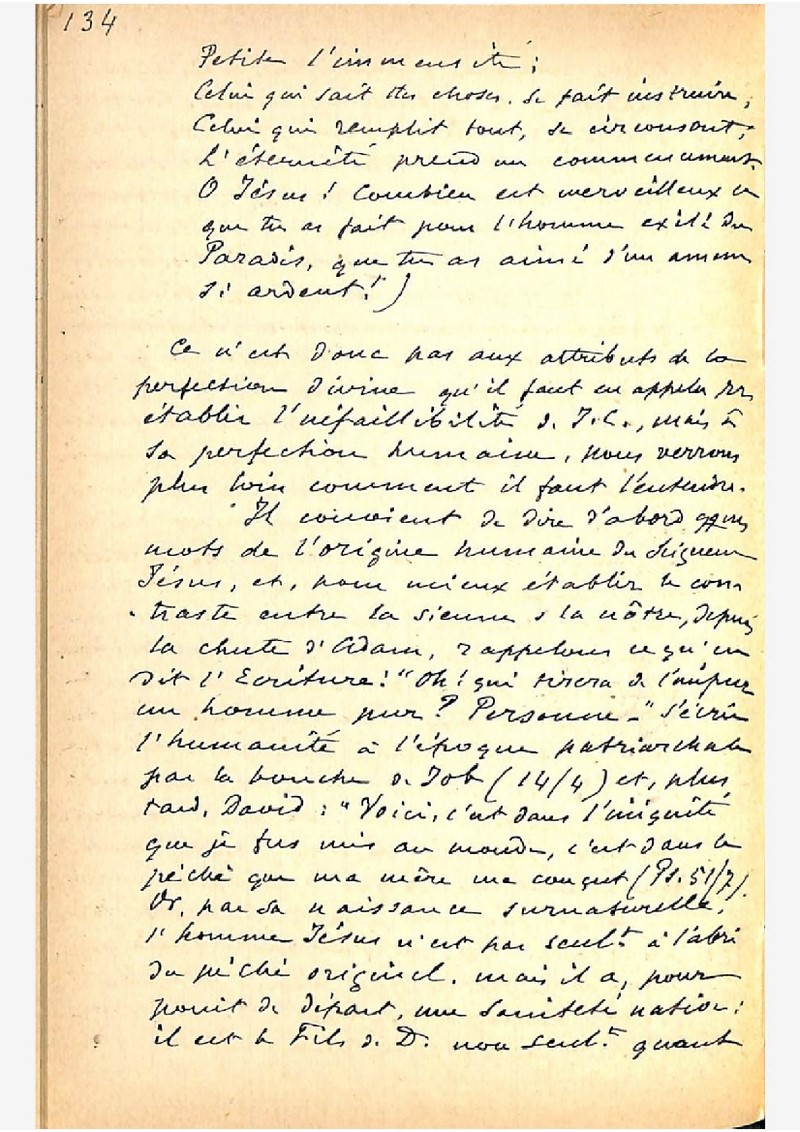 134
Petite l'immensité ;
Celui qui sait les choses, se fait instruire ;
Celui qui remplit tout, se circonscrit ;
L'éternité prend un commencement.
O Jésus ! Combien est merveilleux ce
que tu as fait pour l'homme exilé du
Paradis, que tu as aimé d'un amour
si ardent ! )
Ce n'est donc pas aux attributs de la
perfection divine qu'il faut en appeler pr
établir l'infaillibilité d. J.C., mais à
sa perfection humaine, nous verrons
plus loin comment il faut l'entendre.
Il convient de dire d'abord qques
mots de l'origine humaine du Seigneur
Jésus, et, pour mieux établir le con-
traste entre la sienne & la nôtre, depuis
la chute d'Adam, rappelons ce qu'en
dit l'Ecriture : "Oh ! qui tirera de l'impur
un homme pur ? Personne -" s'écrie
l'humanité à l'époque patriarchale
par la bouche de Job (14/4) et, plus
tard, David : "Voici, c'est dans l'iniquité
que je fus mis au monde, c'est dans le
péché que ma mère me conçut (Ps. 51/7).
Or, par sa naissance surnaturelle,
l'homme Jésus n'est pas seult à l'abri
du péché originel, mais il a, pour
point de départ, une sainteté native :
il est le Fils d. D. non seult quant